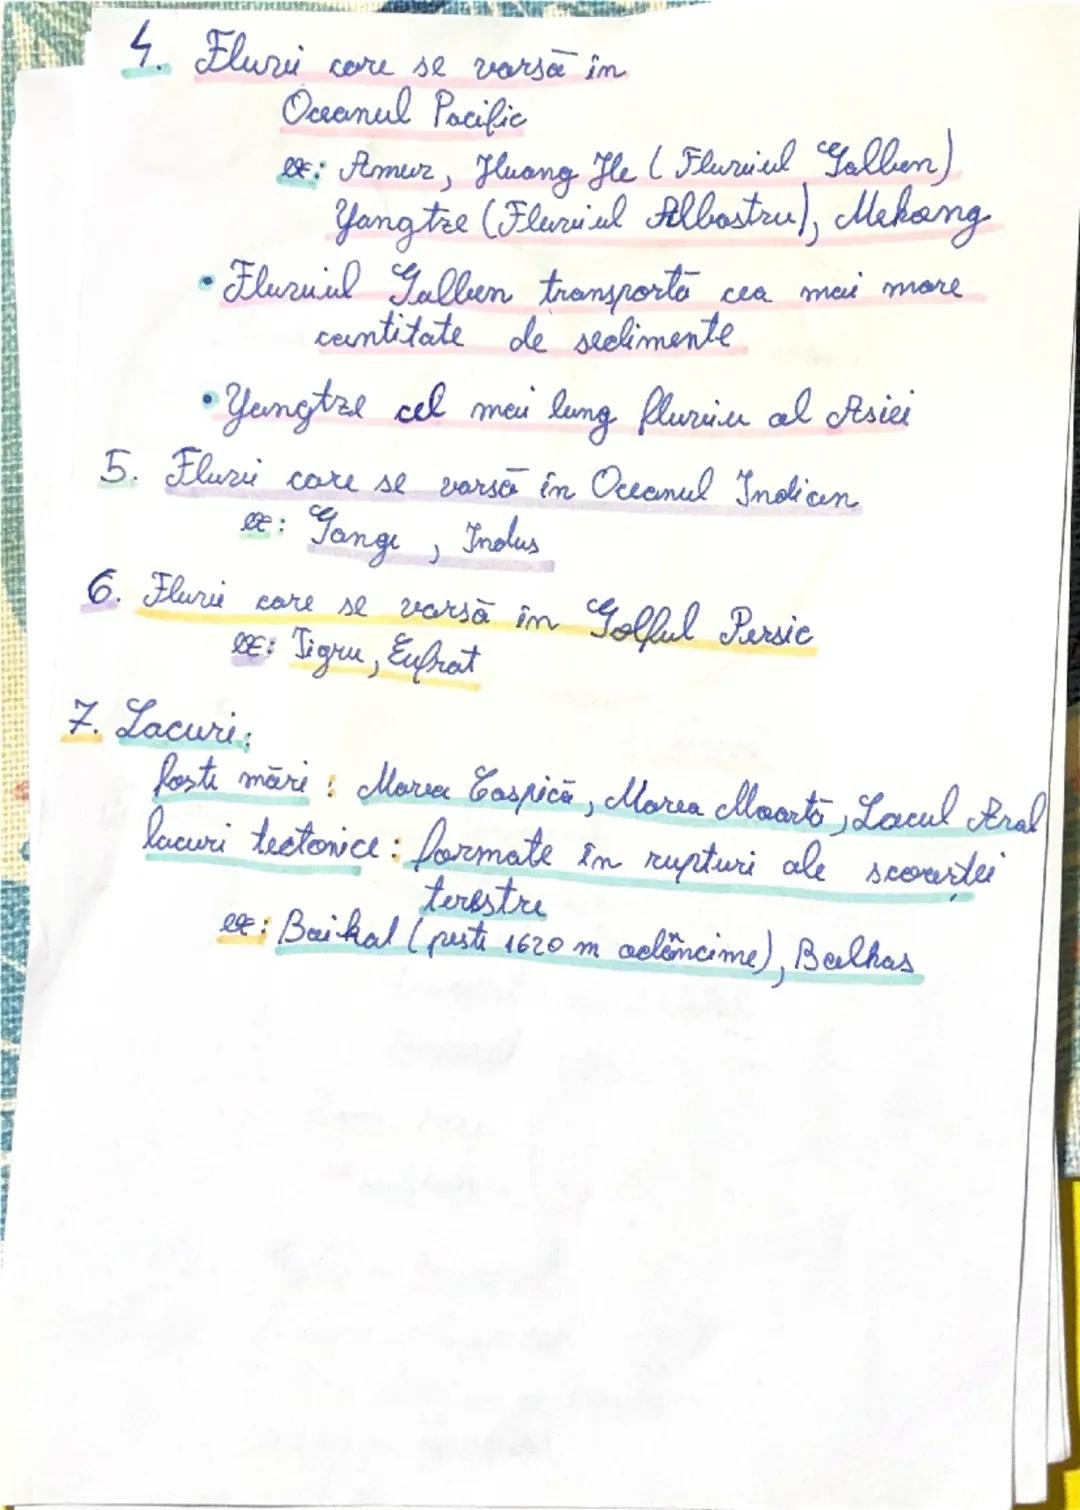 4. Fluvii care se varsă în
Oceanul Pacific
ex: Amur, Huang He (Fluviul Galben)
Yangtze (Fluviul Albastru), Mekong
• Fluviul Galben transportă cea mai mare
cantitate de sedimente
• Yangtze cel mai lung fluviu al Asiei
5. Fluvii care se varsă în Oceanul Indian
ex: Gange, Indus
6. Fluvii care se varsă în Golful Persic
ex: Tigru, Eufrat
7. Lacuri:
foste mări: Marea Caspică, Marea Moartă, Lacul Aral
lacuri tectonice: formate în rupturi ale scoarței
terestre
ex: Baikal (peste 1620 m adâncime), Balhas